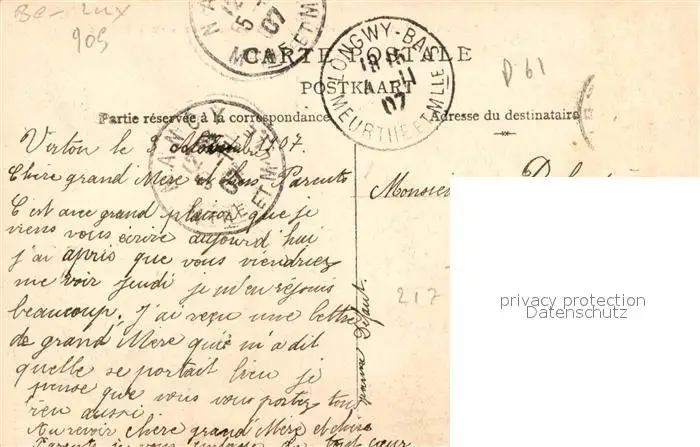 Be-Lux
905
NANCY
5
07
MRTHE ET M
CARTE POSTALE
POSTKAART
LONGWY-BAS
18
4-11
07
MEURTHE ET MLLE
D 61
Partie réservée à la correspondance
Adresse du destinataire
Virton le 3 Novembre 1907.
Chère grand Mère et bons Parents
C'est avec grand plaisir que je
viens vous écrire aujourd'hui
j'ai apris que vous viendriez
me voir jeudi je m'en réjouis
beaucoup. J'ai reçu une lettre
de grand Mère qui m'a dit
quelle se portait bien je
pense que vous vous portez tous
bien aussi.
Au revoir chère grand Mère et chers
Parents je vous embrasse de tout cœur
NANCY
07
ET M
Monsieur
217
privacy protection
Datenschutz